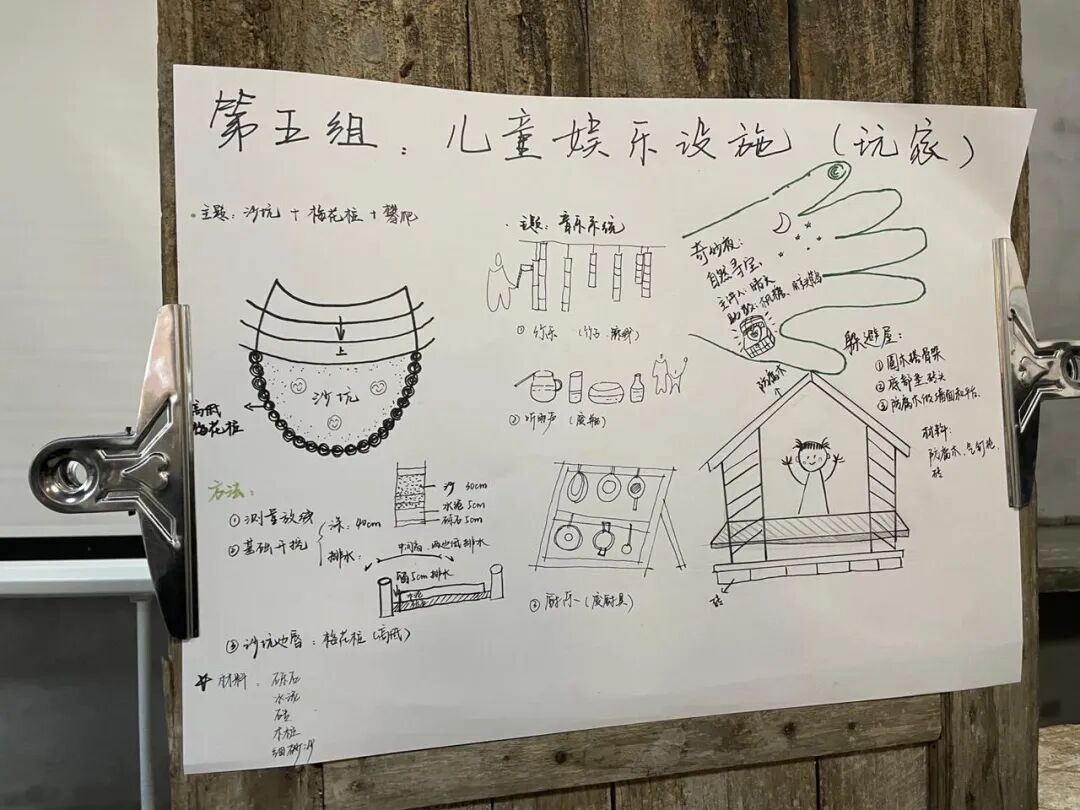 第五组：儿童娱乐设施（玩家）
主题：沙坑 + 梅花桩 + 攀爬
上
沙坑
高低
梅花桩
方法：
① 测量放线
② 基础开挖
深：40cm
排水：
沙 30cm
水泥 5cm
砾石 5cm
中间高，两边低排水
留5cm排水
水泥
③ 沙坑边唇：梅花桩（高低）
材料：砾石
水泥
砖
木桩
细砂
主题：音乐系统
① 竹乐
② 听雨声（废物）
③ 厨乐（废厨具）
奇妙夜：
自然寻宝
主讲人：
助教：
躲避屋：
① 圆木搭骨架
② 底部垫砖头
③ 防腐木做墙面和平台
材料：
防腐木、气钉枪、
砖
防腐木
砖